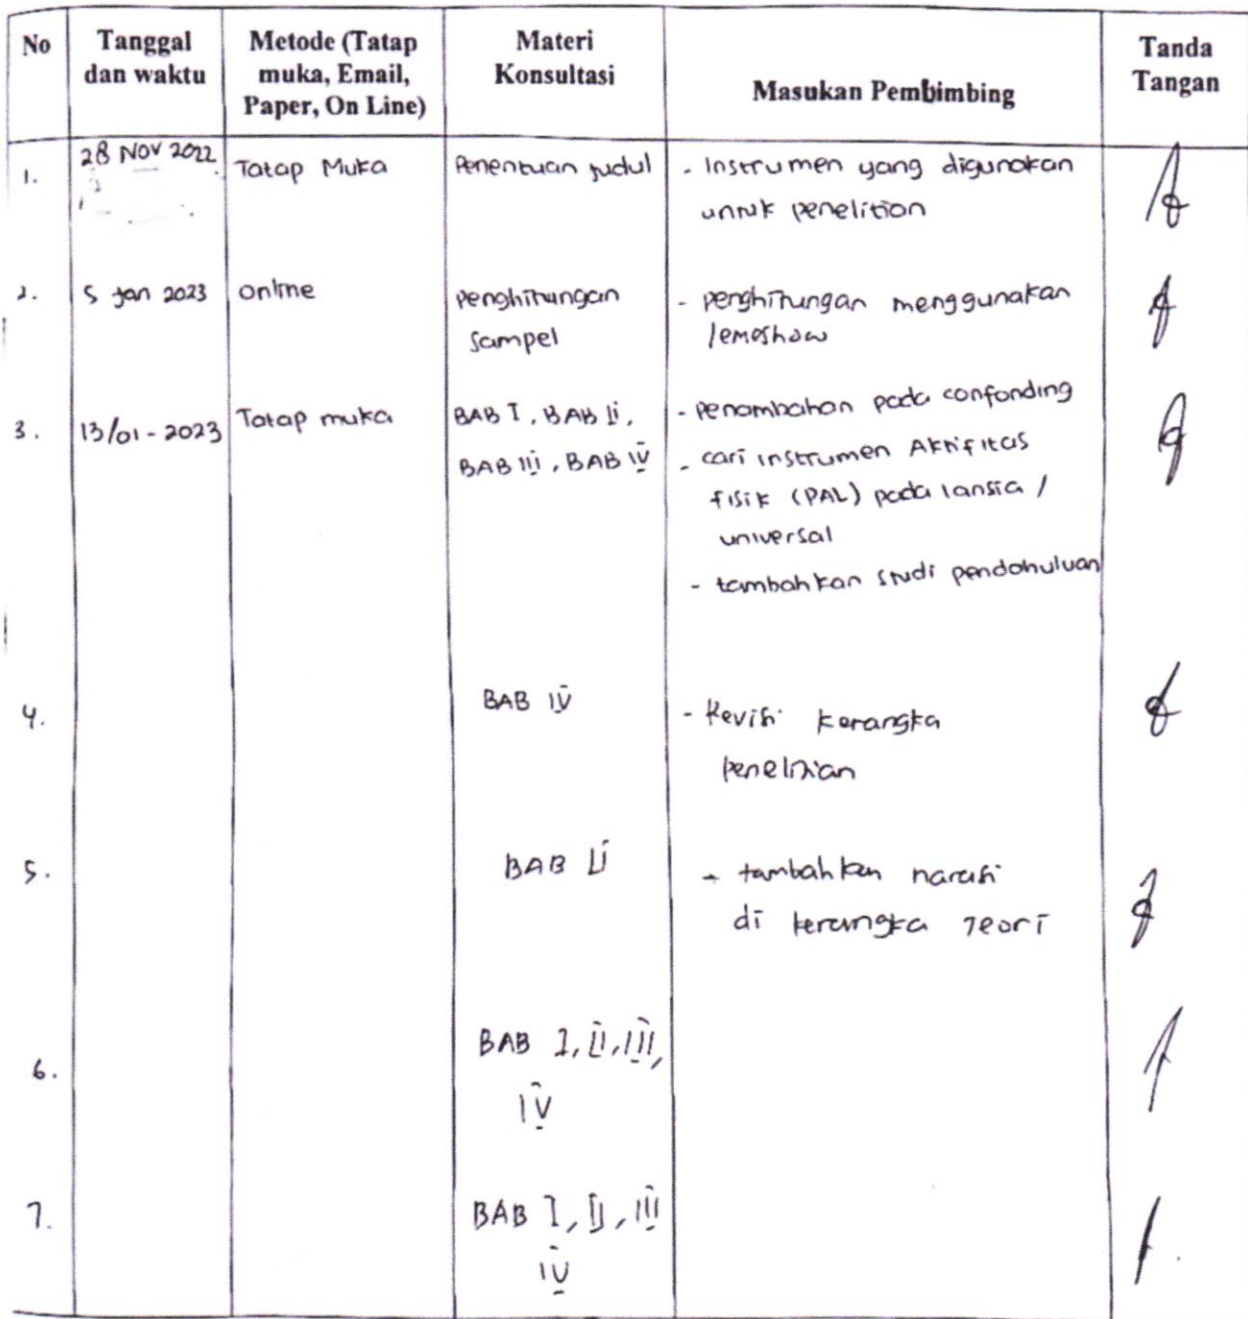 No
Tanggal dan waktu
Metode (Tatap muka, Email, Paper, On Line)
Materi Konsultasi
Masukan Pembimbing
Tanda Tangan
1.
28 Nov 2022
Tatap Muka
Penentuan judul
- Instrumen yang digunakan
untuk penelitian
2.
5 Jan 2023
online
penghitungan
sampel
- penghitungan menggunakan
lemeshow
3.
13/01-2023
Tatap muka
BAB I, BAB II,
BAB III, BAB IV
- penambahan pada confonding
- cari instrumen Aktifitas
fisik (PAL) pada lansia /
universal
- tambahkan studi pendahuluan
4.
BAB IV
- Revisi kerangka
penelitian
5.
BAB II
- tambahkan narasi
di kerangka Teori
6.
BAB I, II, III,
IV
7.
BAB I, II, III
IV